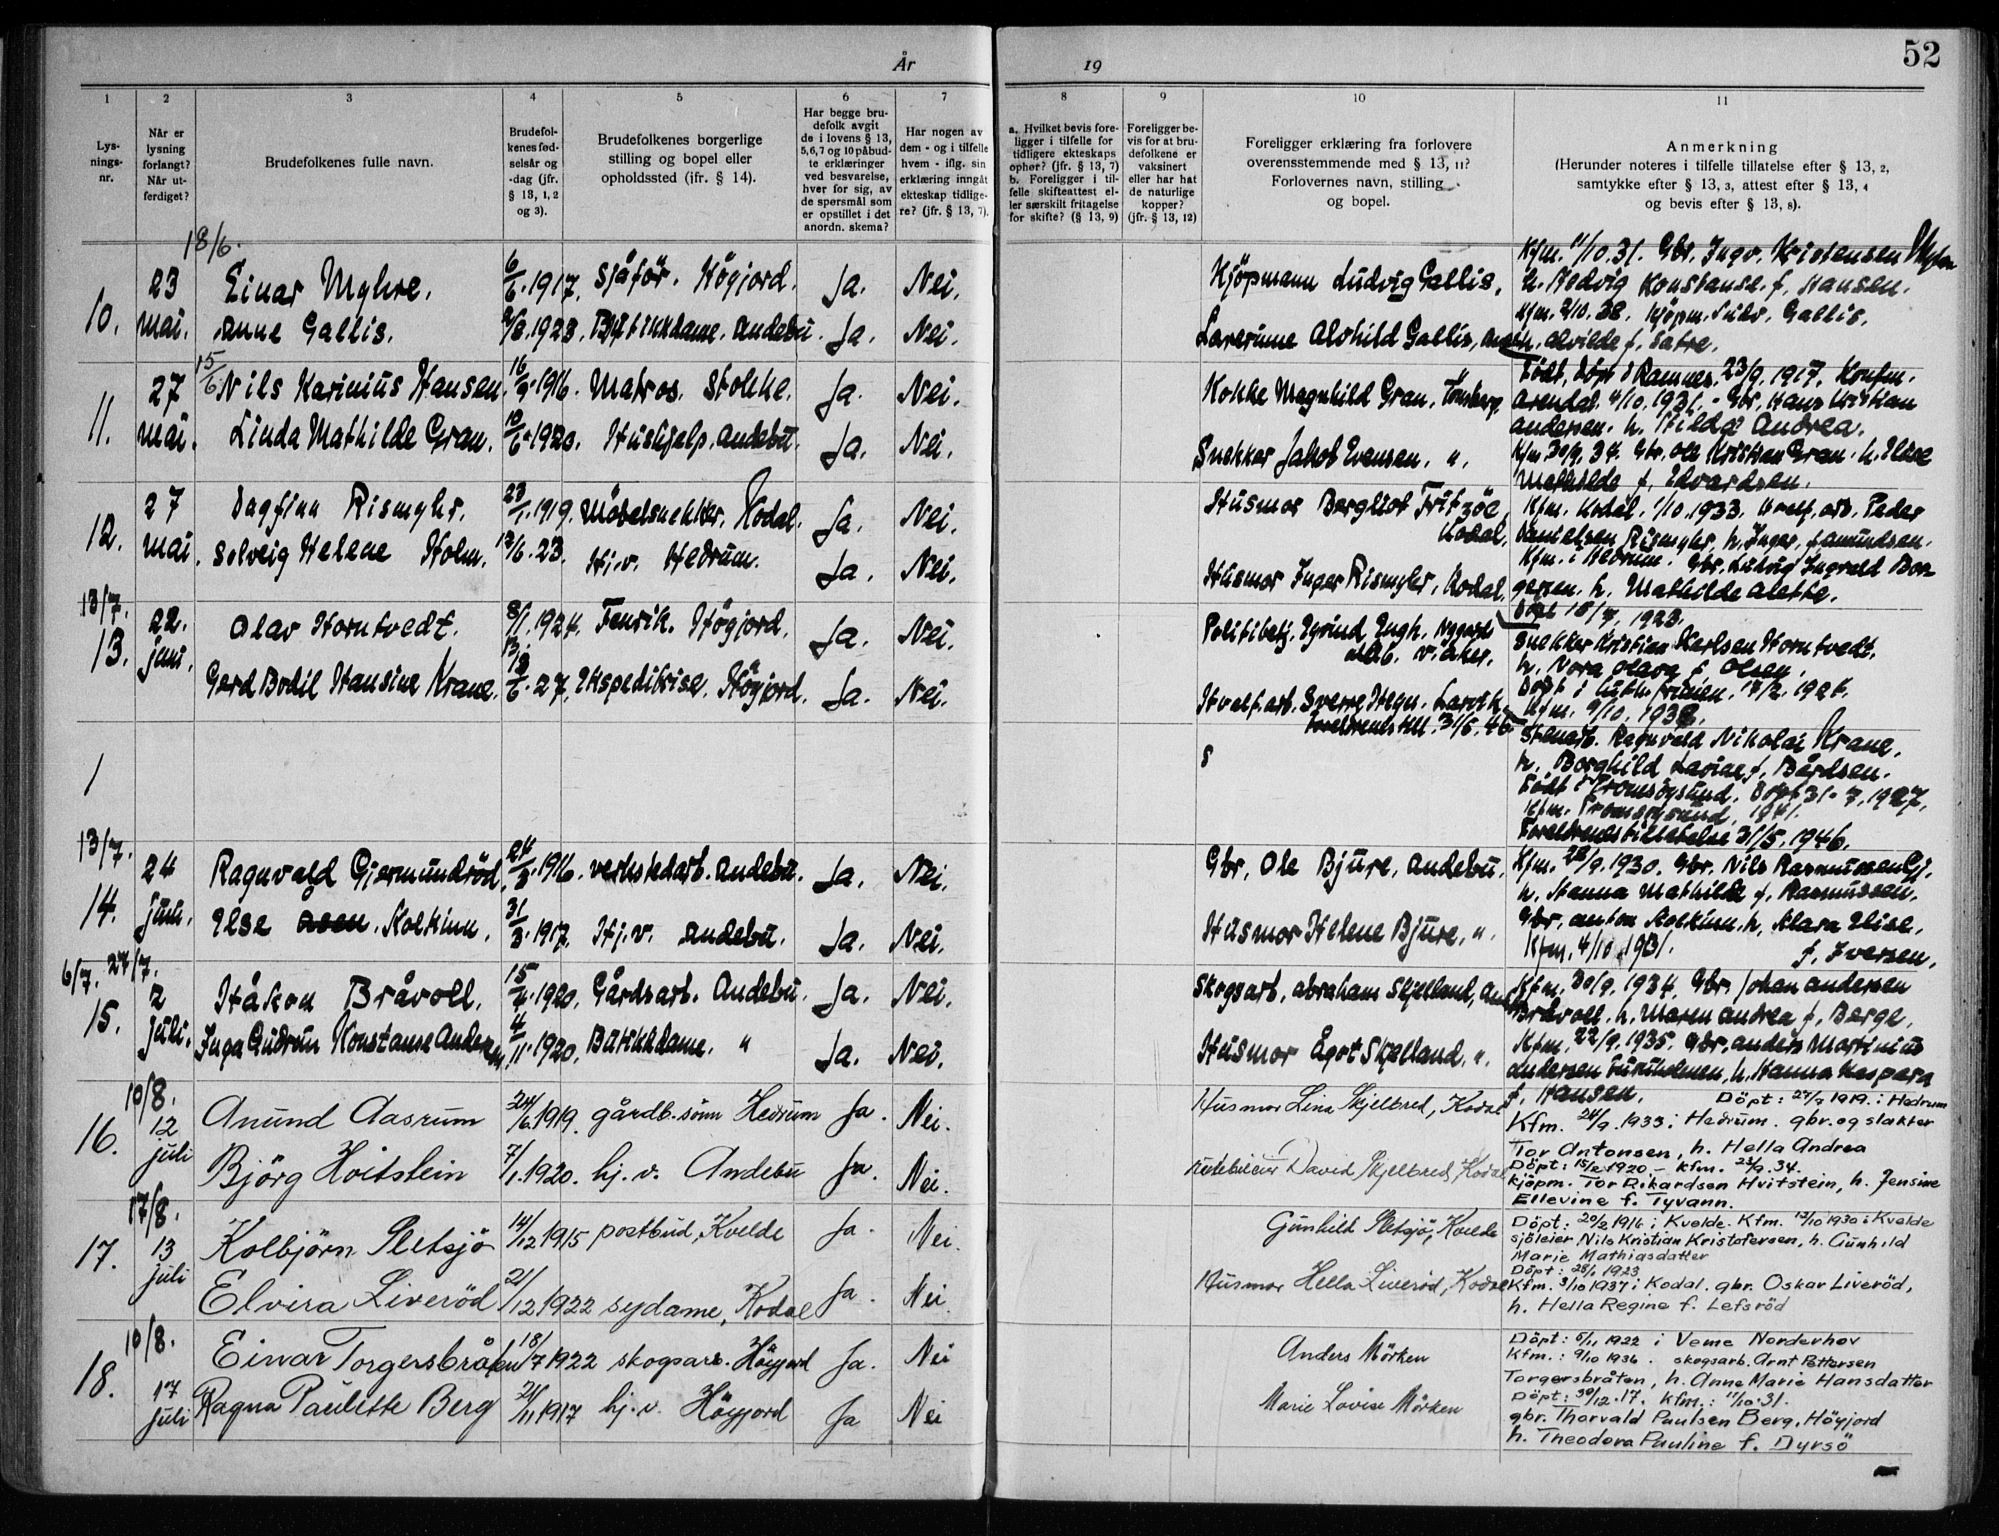 År 19
52
1
2
3
4
5
6
7
8
9
10
11
Lys-
nings-
nr.
Når er
lysning
forlangt?
Når ut-
ferdiget?
Brudefolkenes fulle navn.
Brudefol-
kenes fød-
selsår og
-dag (jfr.
§ 13, 1, 2
og 3).
Brudefolkenes borgerlige
stilling og bopel eller
opholdssted (jfr. § 14).
Har begge bru-
defolk avgit
de i lovens § 13,
5, 6, 7 og 10 påbud-
te erklæringer
ved besvarelse,
hver for sig, av
de spørsmål som
er opstillet i det
anordn. skema?
Har nogen av
dem - og i tilfelle
hvem - iflg. sin
erklæring inngåt
ekteskap tidlige-
re? (jfr. § 13, 7).
a. Hvilket bevis fore-
ligger i tilfelle for
tidligere ekteskaps
ophør? (jfr. § 13, 7)
b. Foreligger i til-
felle skifteattest el-
ler særskilt fritagelse
for skifte? (§ 13, 9)
Foreligger be-
vis for at bru-
defolkene er
vaksinert
eller har hat
de naturlige
kopper?
(jfr. § 13, 12)
Foreligger erklæring fra forlovere
overensstemmende med § 13, 11?
Forlovernes navn, stilling
og bopel.
Anmerkning
(Herunder noteres i tilfelle tillatelse efter § 13, 2,
samtykke efter § 13, 3, attest efter § 13, 4
og bevis efter § 13, 8).
18/6.
10.
23
mai.
Einar Myhre. 6/6. 1917. Sjåför. Högjord. Ja. Nei.
Anne Gallis. 1923. Butikkdame. Andebu. Ja. Nei.
Kjöpmann Ludvig Gallis,
Laverinne Alvhild Gallis,
Kfm. 11/10. 31. Gbr. Ingv. Kristensen
h. Hedvig Konstanse f. Hansen.
Kfm. 2/10. 38. Kjöpm. Ludv. Gallis.
h. Alvilde f. Satre.
15/6
11.
27
mai.
Nils Karinius Hansen. 16/9. 1916. Matros. Stokke. Ja. Nei.
Linda Mathilde Gran. 10/6. 1920. Hushjelp. Andebu. Ja. Nei.
Kokke Magnhild Gran. Tönsberg.
Snekker Jakob Evensen. ".
Födt, döpt i Ramnes. 23/9. 1917. Konfm.
Arendal. 4/10. 1931. - Gbr. Hans Kristian
Andersen. h. Hilda Andrea.
Kfm. 30/9. 34. Gbr. Ole Kristian Gran. h. Elise
Mathilde f. Edvardsen.
12.
27
mai.
Dagfinn Rismyhr. 23/1. 1919. Möbelsnekker. Kodal. Ja. Nei.
Solveig Helene Holm. 12/6. 23. Hj. v. Hedrum. Ja. Nei.
Husmor Bergliot Fritzöe,
Kodal,
Husmor Inger Rismyhr, Kodal.
Kfm. Kodal. 1/10. 1933. Hvalf. arb. Peder
Danielsen Rismyhr, h. Inger, f. Amundsen.
Kfm. i Hedrum. Gbr. Ludvig Ingvald Bor-
gersen. h. Mathilde Alette.
13/7.
13.
22.
juni.
Olav Horntvedt. 8/1. 1924. Fenrik. Högjord. Ja. Nei.
Gerd Bodil Hansine Krane. 27. Ekspeditrise. Högjord. Ja. Nei.
Politibetj. Eyvind Engh. Nygårds
V. Aker.
Hvalf. arb. Sverre Hegn. Larvik.
Foreldrenes till. 31/5. 46.
Döpt 15/7. 1923.
Snekker Kristian Karlsen Horntvedt.
h. Nora Olava f. Olsen.
17/2. 1924.
Kfm. 9/10. 1938.
Stenarb. Ragnvald Nikolai Krane.
h. Borghild Lavine f. Bårdsen.
Födt i Tromsöysund. Döpt 31. 7. 1927.
Kfm. Tromsöysund, 1941.
Foreldrenes tillatelse 31/5. 1946.
13/7.
14.
24
juni.
Ragnvald Gjermundröd. 24/3. 1916. verkstedarb. Andebu. Ja. Nei.
Else Åsen. Kolkinn. 31/3. 1917. Hj. v. Andebu. Ja. Nei.
Gbr. Ole Bjure, Andebu.
Husmor Helene Bjure. ".
Kfm. 28/9. 1930. Gbr. Nils Rasmussen Gj.
h. Hanna Mathilde f. Rasmussen.
Gbr. Anton Kolkinn. h. Klara Elise,
Kfm. 4/10. 1931. f. Iversen.
6/7. 27/7.
15.
2
juli.
Håkon Bråvoll. 15/4. 1920. Gårdsarb. Andebu. Ja. Nei.
Inga Gudrun Konstanse Andersen. 4/11. 1920. Butikkdame. " Ja. Nei.
Skogsarb. Abraham Skjelland, And.
Husmor Ågot Skjelland. ".
Kfm. 30/9. 1934. Gbr. Johan Andersen
Bråvoll. h. Maren Andrea f. Berge.
Kfm. 22/9. 1935. Gbr. Anders Martinius
Andersen h. Hanna Kaspara
f. Hansen.
10/8.
16.
12
juli
Anund Aasrum 24/6. 1919. gårdb. sönn Hedrum Ja. Nei.
Björg Hvitstein 7/1. 1920. hj. v. Andebu Ja. Nei.
Husmor Lina Skjelbred, Kodal
David Skjelbred, Kodal
Döpt: 27/7 1919. i Hedrum
Kfm. 24/9. 1933 i Hedrum. gbr. og slakter
Tor Antonsen, h. Hella Andrea
Döpt: 15/2 1920 - Kfm. 23/9. 34.
Kjöpm. Tor Rikardsen Hvitstein, h. Jensine
Ellevine f. Tyvann.
17/8.
17.
13
juli
Kolbjörn Sletsjö 14/12 1915 postbud, Kvelde Ja. Nei.
Elvira Liveröd 21/12 1922 sydame, Kodal Ja. Nei.
Gunhild Sletsjö, Kvelde
Husmor Hella Liveröd, Kodal
Döpt: 20/2 1916 i Kvelde. Kfm. 12/10 1930 i Kvelde
sjöleier Nils Kristian Kristofersen, h. Gunhild
Marie Mathiasdatter
Döpt: 28/1 1923
Kfm. 3/10 1937 i Kodal. gbr. Oskar Liveröd,
h. Hella Regine f. Lefsröd
10/8.
18.
17
juli
Einar Torgersbråten 18/7 1922 skogsarb. Höyjord Ja. Nei
Ragna Paulette Berg 21/11 1917 hj. v. Höyjord Ja Nei
Anders Mörken
Marie Lovise Mörken
Döpt: 5/11 1922 i Veme Norderhov
Kfm.: 9/10 1936. skogsarb. Arnt Pettersen
Torgersbråten, h. Anne Marie Hansdatter
Döpt: 30/12. 17. Kfm.: 11/10. 31.
gbr. Thorvald Paulsen Berg, Höyjord
h. Theodora Pauline f. Dyrsö